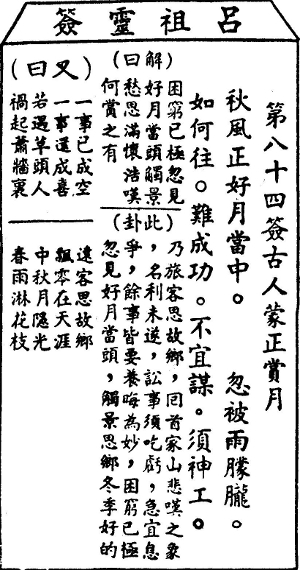 呂祖靈簽
第八十四簽古人蒙正賞月
秋風正好月當中。 忽被雨朦朧。
如何往。難成功。不宜謀。須神工。
(解曰)
困窮已極忽見
好月當頭觸景
愁思滿懷浩嘆
何賞之有
(此卦)
乃旅客思故鄉,回首家山悲嘆之象
,名利未遂,訟事須吃虧,急宜息
爭,餘事皆要養晦為妙,困窮已極
忽見好月當頭,觸景思鄉冬季好的
(又曰)
一事已成空
一事還成喜
若遇羊頭人
禍起蕭牆裏
遠客思故鄉
飄零在天涯
中秋月隱光
春雨淋花枝